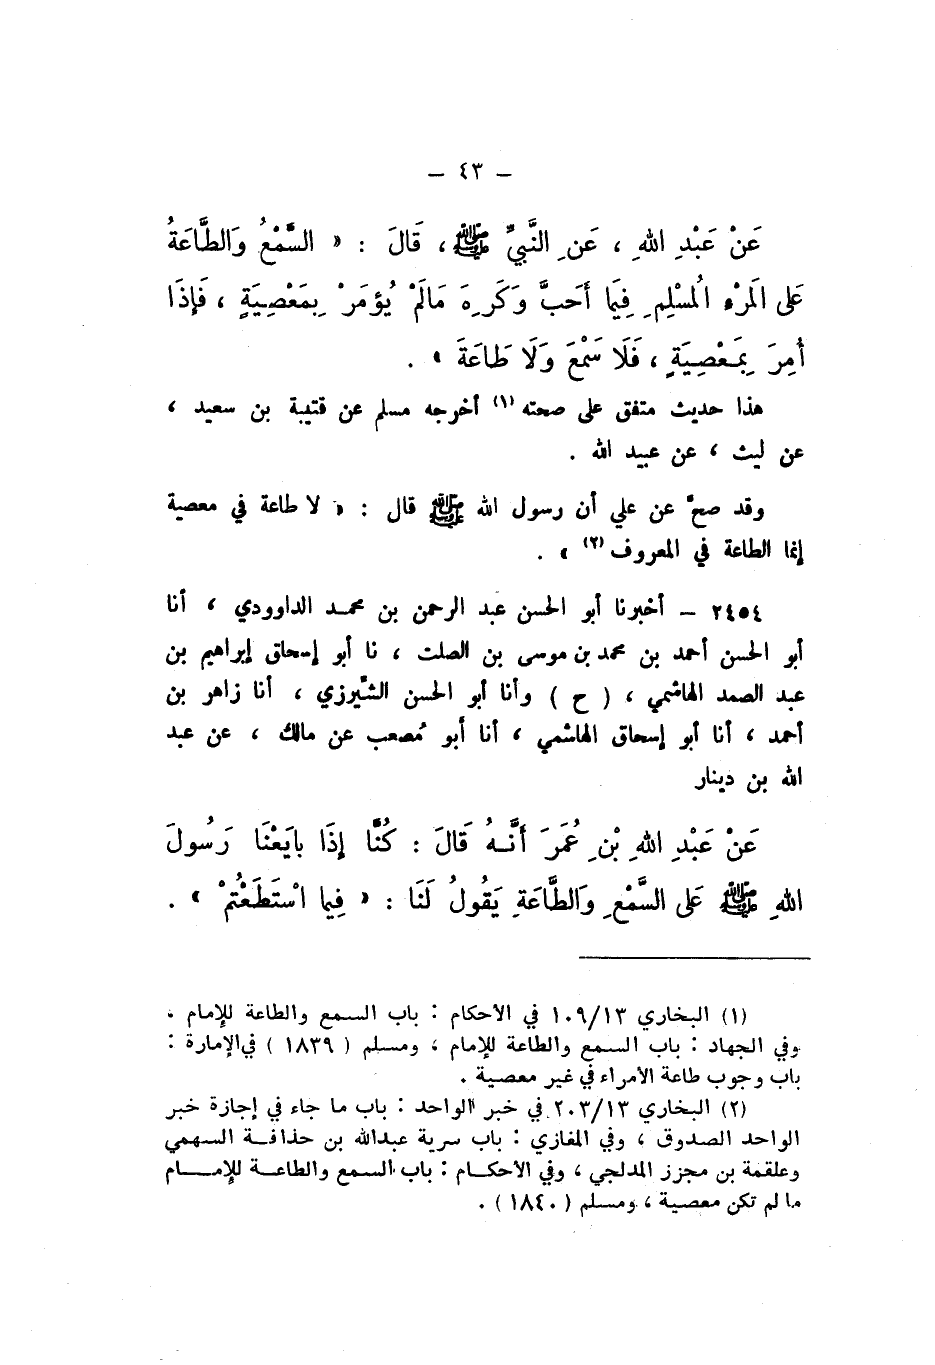 – ٤٣ –
عَنْ عَبْدِ اللهِ ، عَنِ النَّبِيِّ ﷺ ، قَالَ : « السَّمْعُ وَالطَّاعَةُ
عَلى المَرْءِ المُسْلِمِ فِيمَا أَحَبَّ وَكَرِهَ مَالَمْ يُؤمَرْ بِمَعْصِيَةٍ ، فَإِذَا
أُمِرَ بِمَعْصِيَةٍ ، فَلَا سَمْعَ وَلَا طَاعَةَ » .
هذا حديث متفق على صحته (١) أخرجه مسلم عن قتيبة بن سعيد ،
عن ليث ، عن عبيد الله .
وقد صحَّ عن علي أن رسول الله ﷺ قال : « لا طاعة في معصية
إنما الطاعة في المعروف (٢) » .
٢٤٥٤ – أخبرنا أبو الحسن عبد الرحمن بن محمد الداوودي ، أنا
أبو الحسن أحمد بن محمد بن موسى بن الصلت ، نا أبو إسحاق إبراهيم بن
عبد الصمد الهاشمي ، ( ح ) وأنا أبو الحسن الشَّيرزي ، أنا زاهر بن
أحمد ، أنا أبو إسحاق الهاشمي ، أنا أبو مُصعب عن مالك ، عن عبد
الله بن دينار
عَنْ عَبْدِ اللهِ بْنِ عُمَرَ أَنَّهُ قَالَ : كُنَّا إِذَا بايَعْنَا رَسُولَ
اللهِ ﷺ عَلى السَّمْعِ وَالطَّاعَةِ يَقُولُ لَنَا : « فِيما اسْتَطَعْتُمْ » .
(١) البخاري ١٠٩/١٣ في الأحكام : باب السمع والطاعة للإمام ،
وفي الجهاد : باب السمع والطاعة للإمام ، ومسلم ( ١٨٣٩ ) في الإمارة :
باب وجوب طاعة الأمراء في غير معصية .
(٢) البخاري ٢٠٣/١٣ في خبر الواحد : باب ما جاء في إجازة خبر
الواحد الصدوق ، وفي المغازي : باب سرية عبدالله بن حذافة السهمي
وعلقمة بن مجزز المدلجي ، وفي الأحكام : باب السمع والطاعة للإمام
ما لم تكن معصية ، ومسلم ( ١٨٤٠ ) .